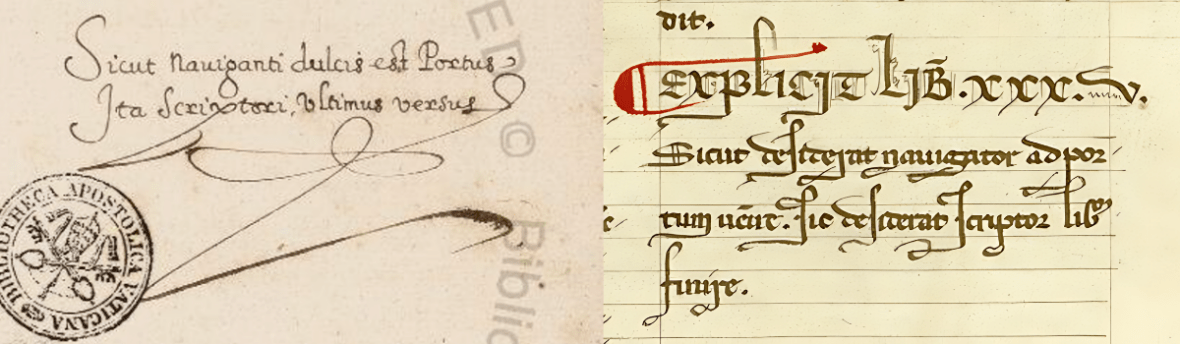 Sicut Nauiganti dulcis est Portus
Ita Scriptori, Vltimus versus
BIBLIOTHECA APOSTOLICA VATICANA
dit.
EXPLICIT LIB. XXX.V.
Sicut desiderat nauigator ad por
tum uenire. sic desiderat scriptor lib
finire.